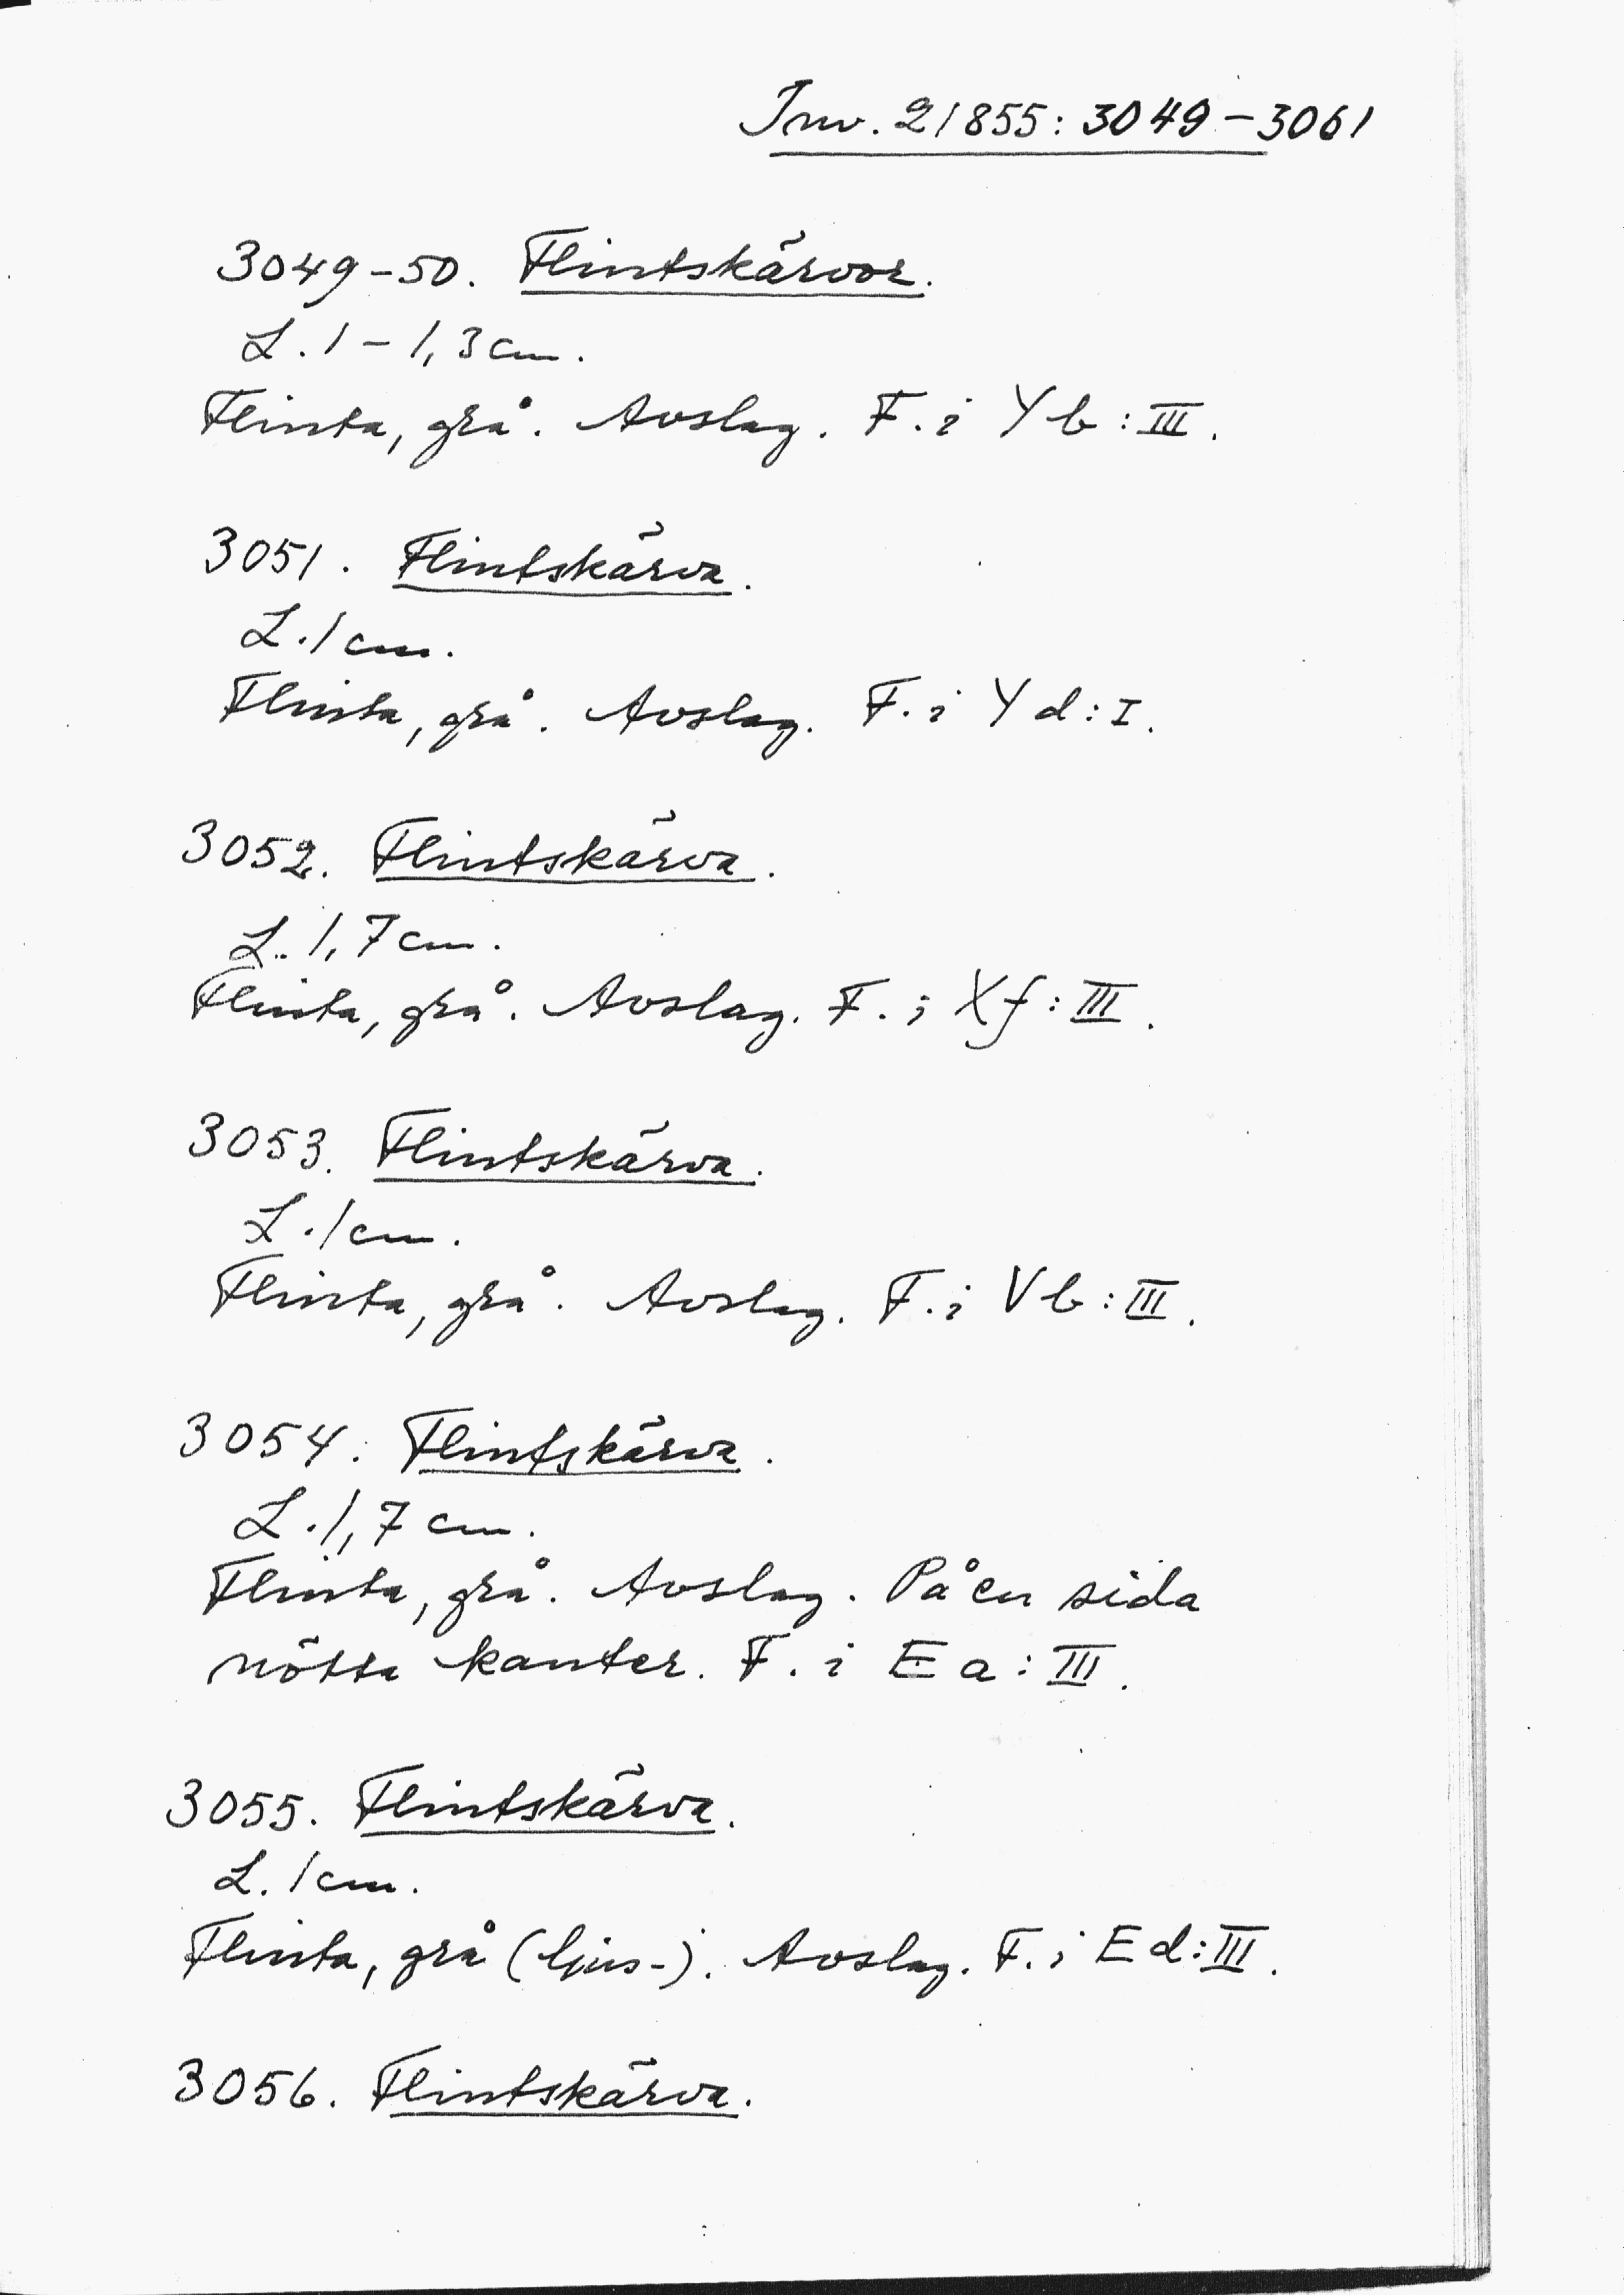 Inv. 21855: 3049-3061
3049-50. Flintskärvor.
L. 1 - 1,3 cm.
Flinta, grå. Avslag. F. i Y b : III.
3051. Flintskärva.
L. 1 cm.
Flinta, grå. Avslag. F. i Y d : I.
3052. Flintskärva.
L. 1,7 cm.
Flinta, grå. Avslag. F. i X f : III.
3053. Flintskärva.
L. 1 cm.
Flinta, grå. Avslag. F. i V b : III.
3054. Flintskärva.
L. 1,7 cm.
Flinta, grå. Avslag. På en sida
nötta kanter. F. i E a : III.
3055. Flintskärva.
L. 1 cm.
Flinta, grå (ljus-). Avslag. F. i E d : III.
3056. Flintskärva.